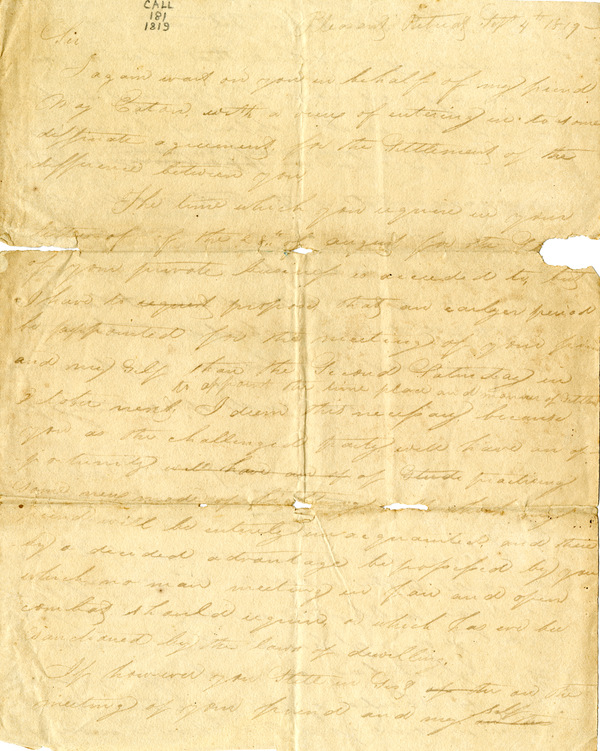 CALL
181
1819
Pleasant Retreat Sept 4th 1819
Sir
I again wait on you in behalf of my friend
May Eaton with a view of entering in to some
agreement for the settlement of the
difference between you
The time which you require in your
of the 28th of august for the
of your private business is acceeded to but
I have to request propose that an earlyer period
be appointed for the meeting of your friend
and my self than the Second Saturday in
to appoint the time place and manner of
October next, I deem this necessary because
you as the challenged party will have an op
portunity will have an op of practicing
some new mode of
will be entirely unacquainted, and there
by a decided advantage be possessed by you
which no man meeting in fair and open
combat should require, or which has ever been
sanctioned by the laws of duelling
If however you State in on the
meeting of your friend and my self